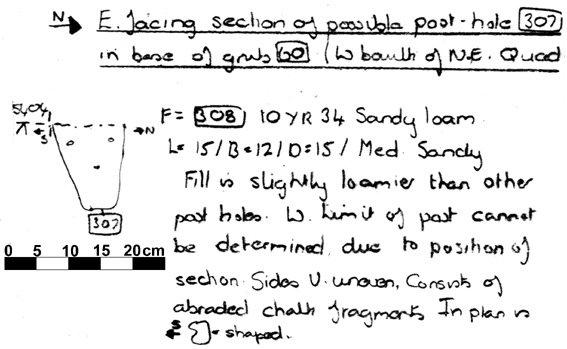 N E. facing section of possible post-hole 307
in base of grub 60 (W baulk of N.E. Quad
F= 308 10 YR 34 Sandy loam
S N
L= 15/B=12/D=15/ Med. Sandy
Fill is slightly loamier than other
post holes. W. Limit of post cannot
307
be determined, due to position of
0 5 10 15 20cm
section. Sides V. uneven, Consists of
abraded chalk fragments In plan is
S shaped.